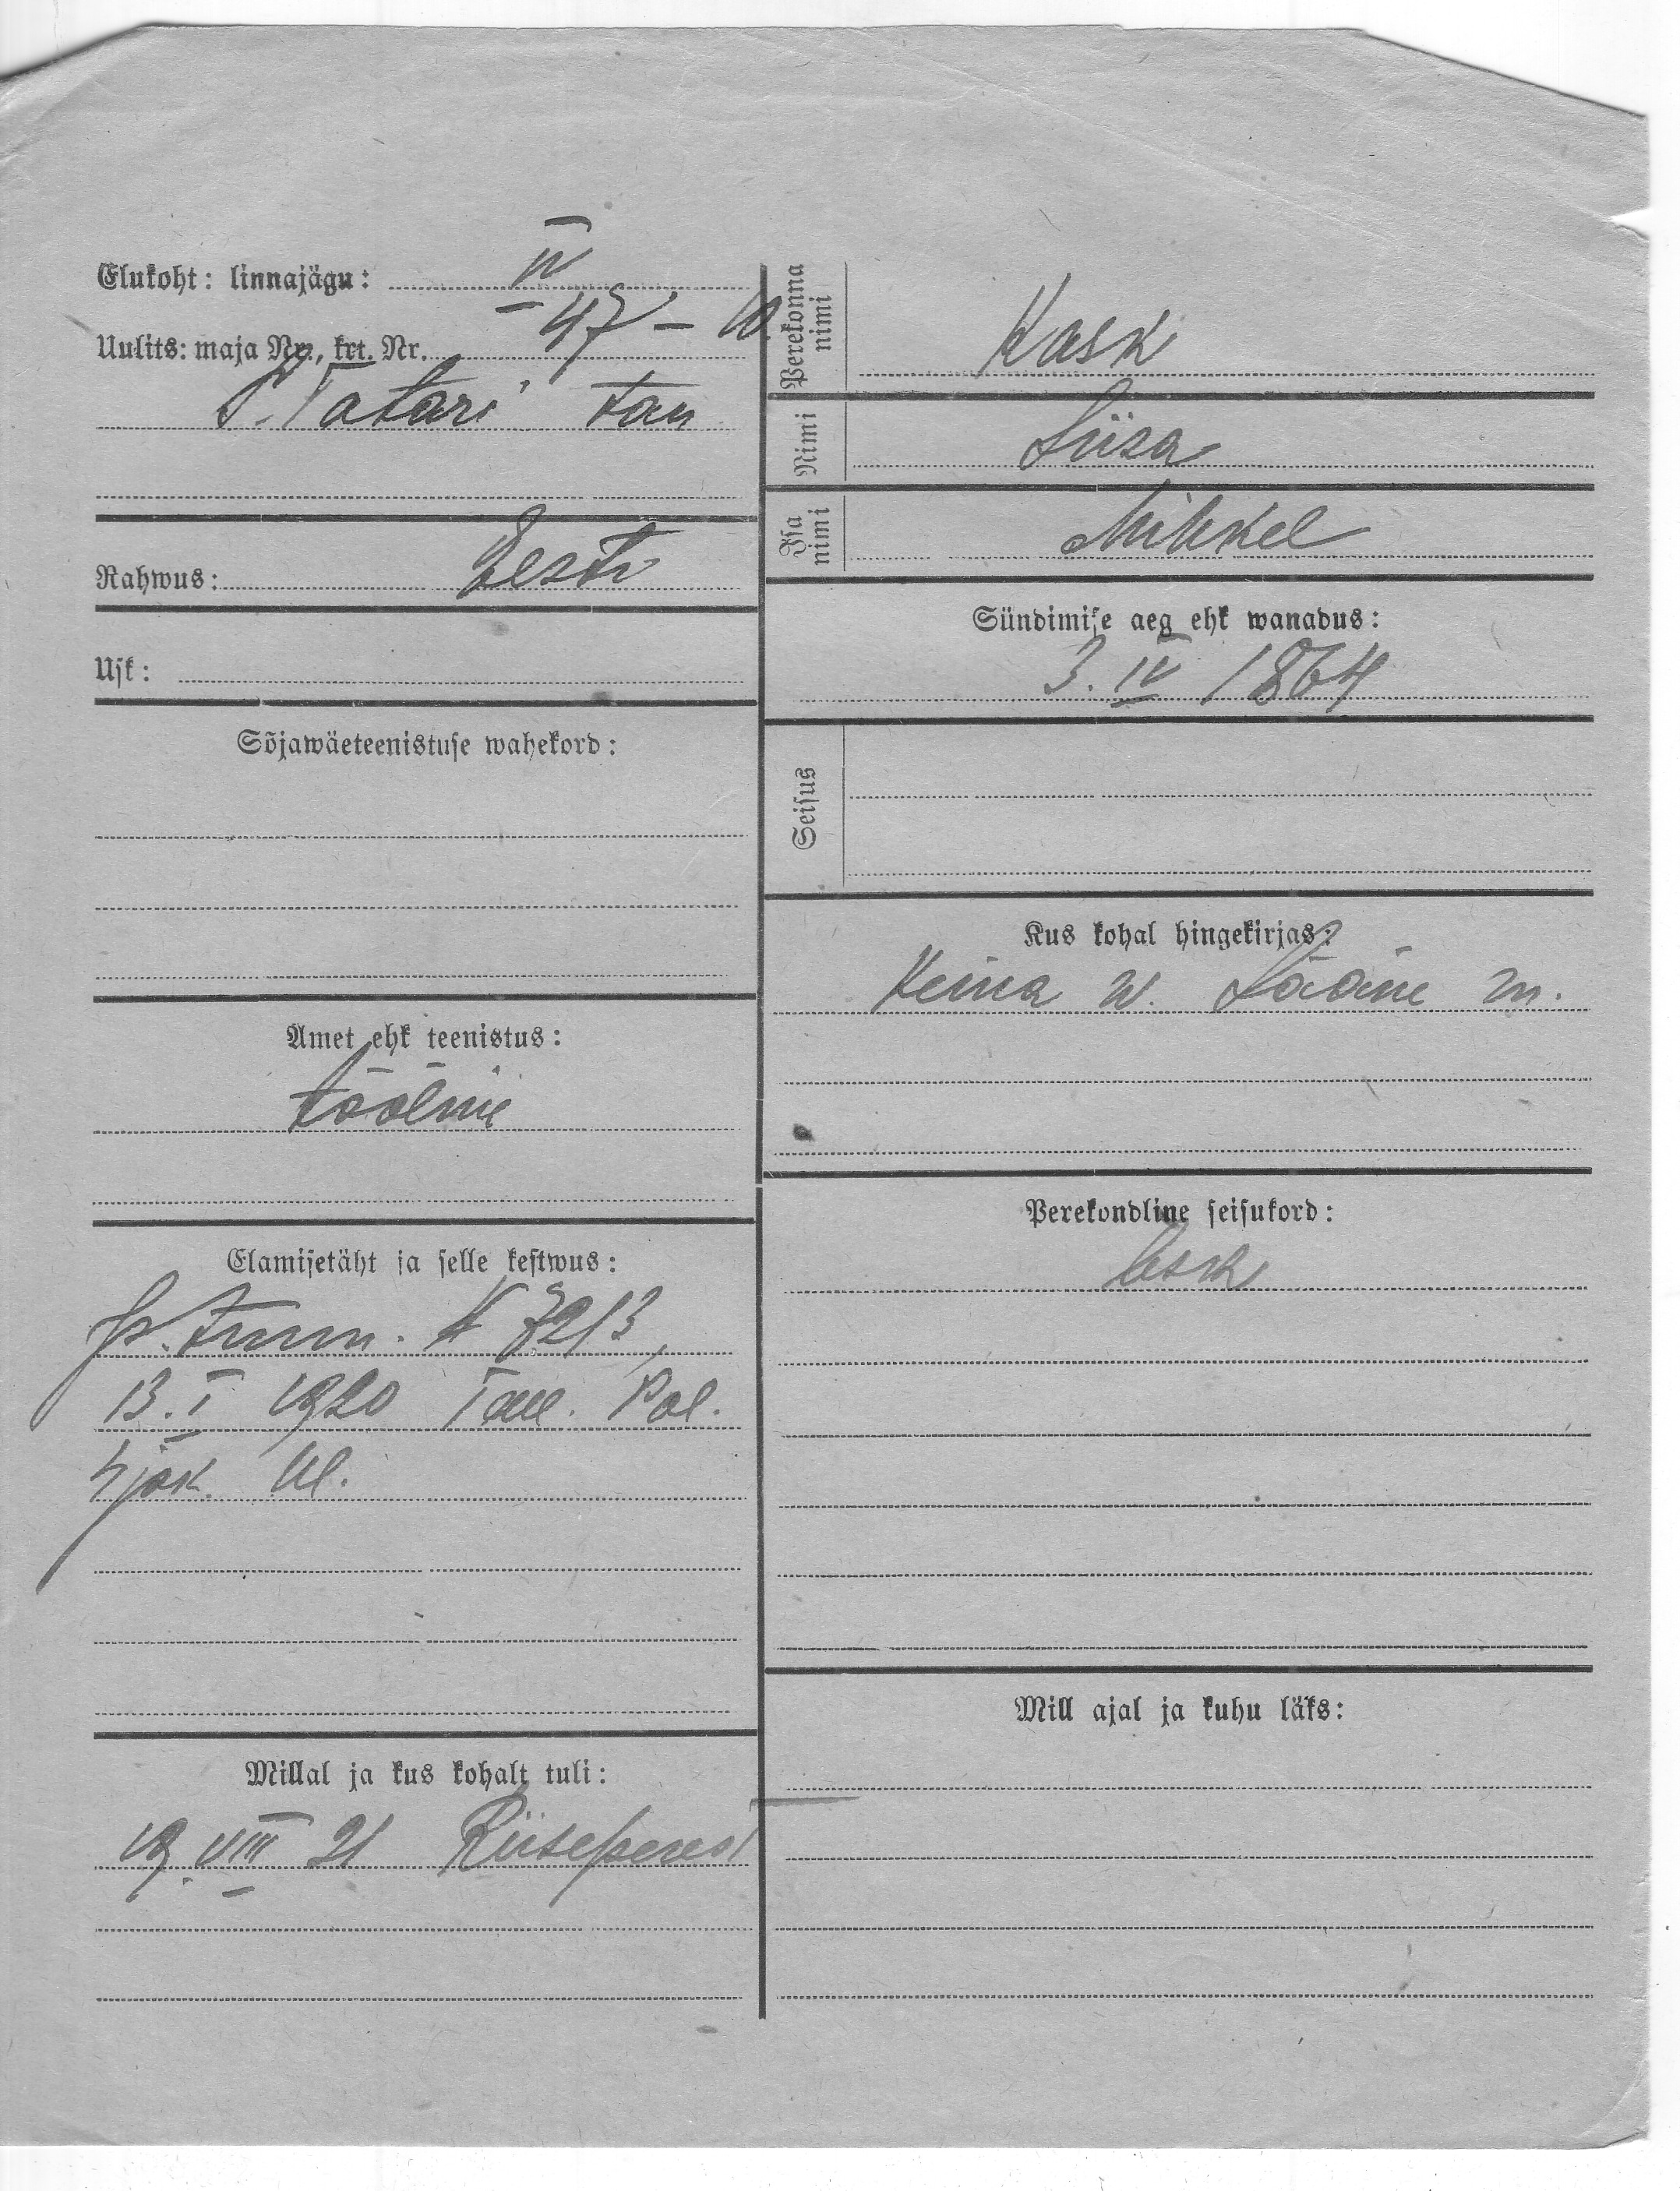 Elukoht: linnajägu: IV
Uulits: maja Nr., krt. Nr. 47 – 10.
P. Tatari tän
Rahwus: Eesti
Usk:
Sõjawäeteenistuse wahekord:
Amet ehk teenistus:
tööline
Elamisetäht ja selle kestwus:
Is. tunn. N 7213,
13. I 1920 Tall. Pol.
4 jsk. Ül.
Millal ja kus kohalt tuli:
19 VIII 21 Riisiperest
Perekonna nimi Kask
Nimi Liisa
Isa nimi Mihkel
Sündimise aeg ehk wanadus:
3. IV 1864
Seisus
Kus kohal hingekirjas:
Keina w. Lääne m.
Perekondline seisukord:
lesk
Mill ajal ja kuhu läks: